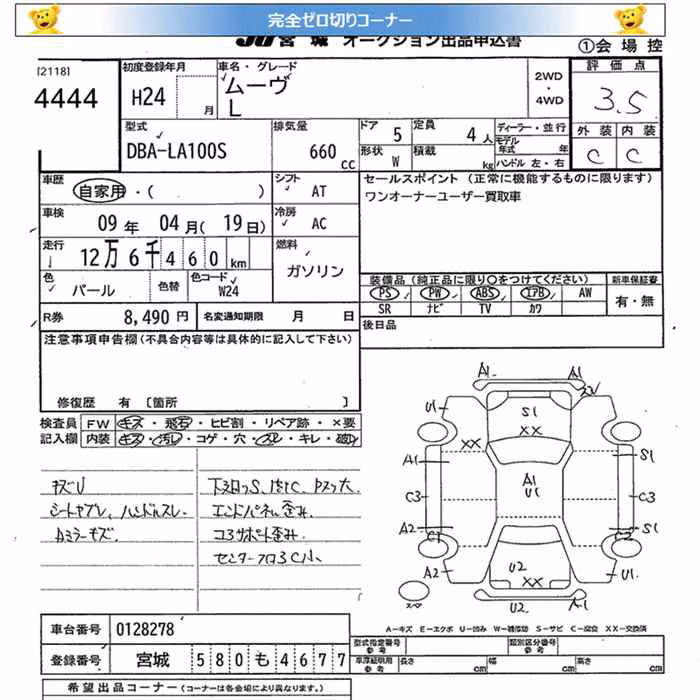 完全ゼロ切りコーナー
JU 宮城 オークション出品申込書
①会場控
[2118]
4444
初度登録年月
H24 月
車名・グレード
ムーヴ
L
2WD
・
4WD
評価点
3.5
型式
DBA-LA100S
排気量
660 cc
ドア 5
定員 4人
形状 W
積載 kg
ディーラー・並行
モデル年式 年
ハンドル 左・右
外装 内装
C C
車歴
自家用・( )
シフト
AT
セールスポイント (正常に機能するものに限ります)
ワンオーナーユーザー買取車
車検
09年 04月(19日)
冷房
AC
走行
12万6千460km
燃料
ガソリン
色
パール
色替
色コード
W24
装備品(純正品に限り○をつけてください)
新車保証書
PS PW ABS エアB AW
有・無
SR ナビ TV カワ
R券 8,490円
名変通知期限 月 日
後日品
注意事項申告欄(不具合内容等は具体的に記入して下さい)
修復歴 有 [箇所 ]
検査員
記入欄
FW キズ・飛石・ヒビ割・リペア跡・×要
内装 キズ・汚れ・コゲ・穴・スレ・キレ・破れ
キズU
シートヤブレ、ハンドルスレ
エンドパネル歪み
コアサポート歪み
A1 A1
U1 S1 XX
XX
A1 A1 U1 S1
C3 C3
A2 C1 C2 S1
A2 U2 XX U1
スペア U2 A1
A−キズ E−エクボ U−凹み W−補修跡 S−サビ C−腐食 XX−交換済
車台番号 0128278
登録番号 宮城 580 も 4677
型式指定番号 類別区分番号
車庫証明用参考 長さ cm 幅 cm 高さ cm
希望出品コーナー(コーナーは各会場により異なります。)